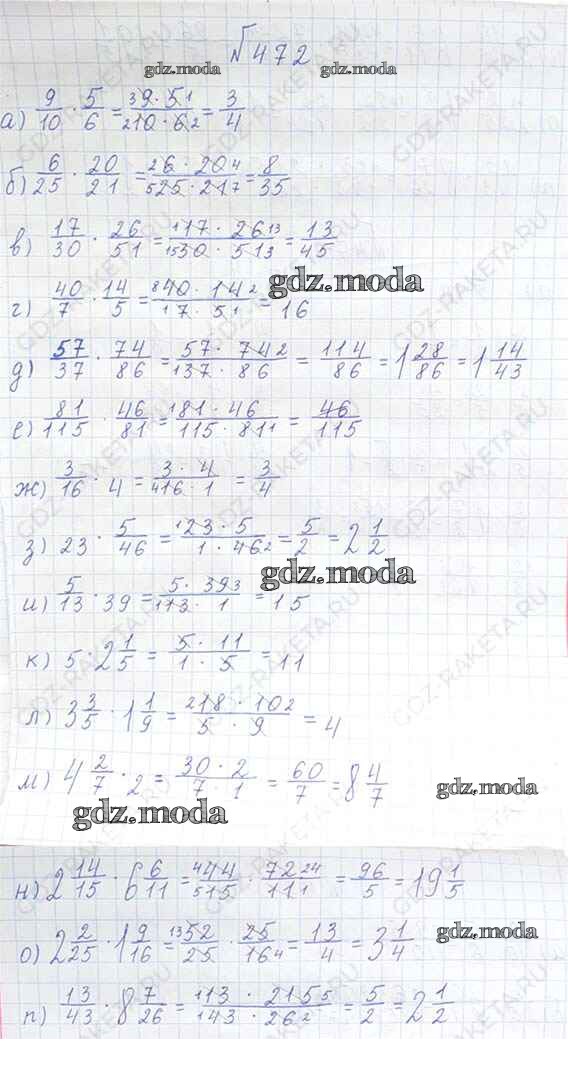 № 472
gdz.moda gdz.moda
а) 9/10 · 5/6 = 39·51/210·62 = 3/4
б) 6/25 · 20/21 = 26·204/525·217 = 8/35
в) 17/30 · 26/51 = 117·2613/1530·513 = 13/45
gdz.moda
г) 40/7 · 14/5 = 840·142/17·51 = 16
д) 57/37 · 74/86 = 57·742/137·86 = 114/86 = 1 28/86 = 1 14/43
е) 81/115 · 46/81 = 181·46/115·811 = 46/115
ж) 3/16 · 4 = 3·4/416·1 = 3/4
з) 23 · 5/46 = 123·5/1·462 = 5/2 = 2 1/2
gdz.moda
и) 5/13 · 39 = 5·393/113·1 = 15
к) 5 · 2 1/5 = 5·11/1·5 = 11
л) 3 3/5 · 1 1/9 = 218·102/5·9 = 4
м) 4 2/7 · 2 = 30·2/7·1 = 60/7 = 8 4/7
gdz.moda
gdz.moda
н) 2 14/15 · 6 6/11 = 444/515 · 7224/111 = 96/5 = 19 1/5
о) 2 2/25 · 1 9/16 = 1352/25 · 25/164 = 13/4 = 3 1/4
gdz.moda
п) 13/43 · 8 7/26 = 113·2155/143·262 = 5/2 = 2 1/2
gdz.moda
GDZ-RAKETA.RU